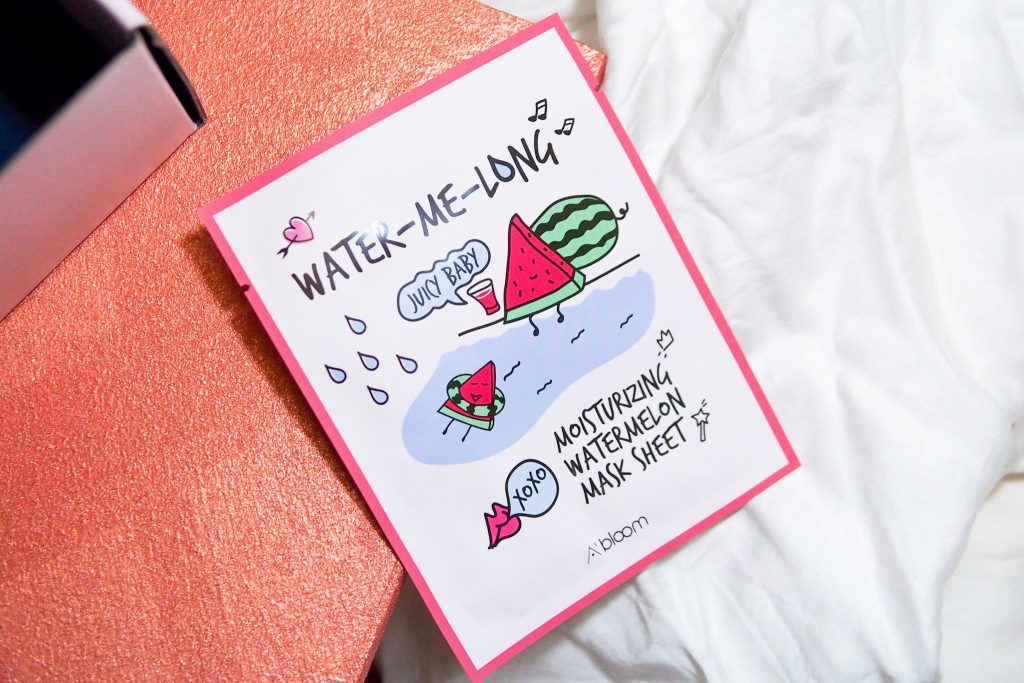 WATER-ME-LONG
JUICY BABY
MOISTURIZING
WATERMELON
MASK SHEET
XOXO
A'bloom